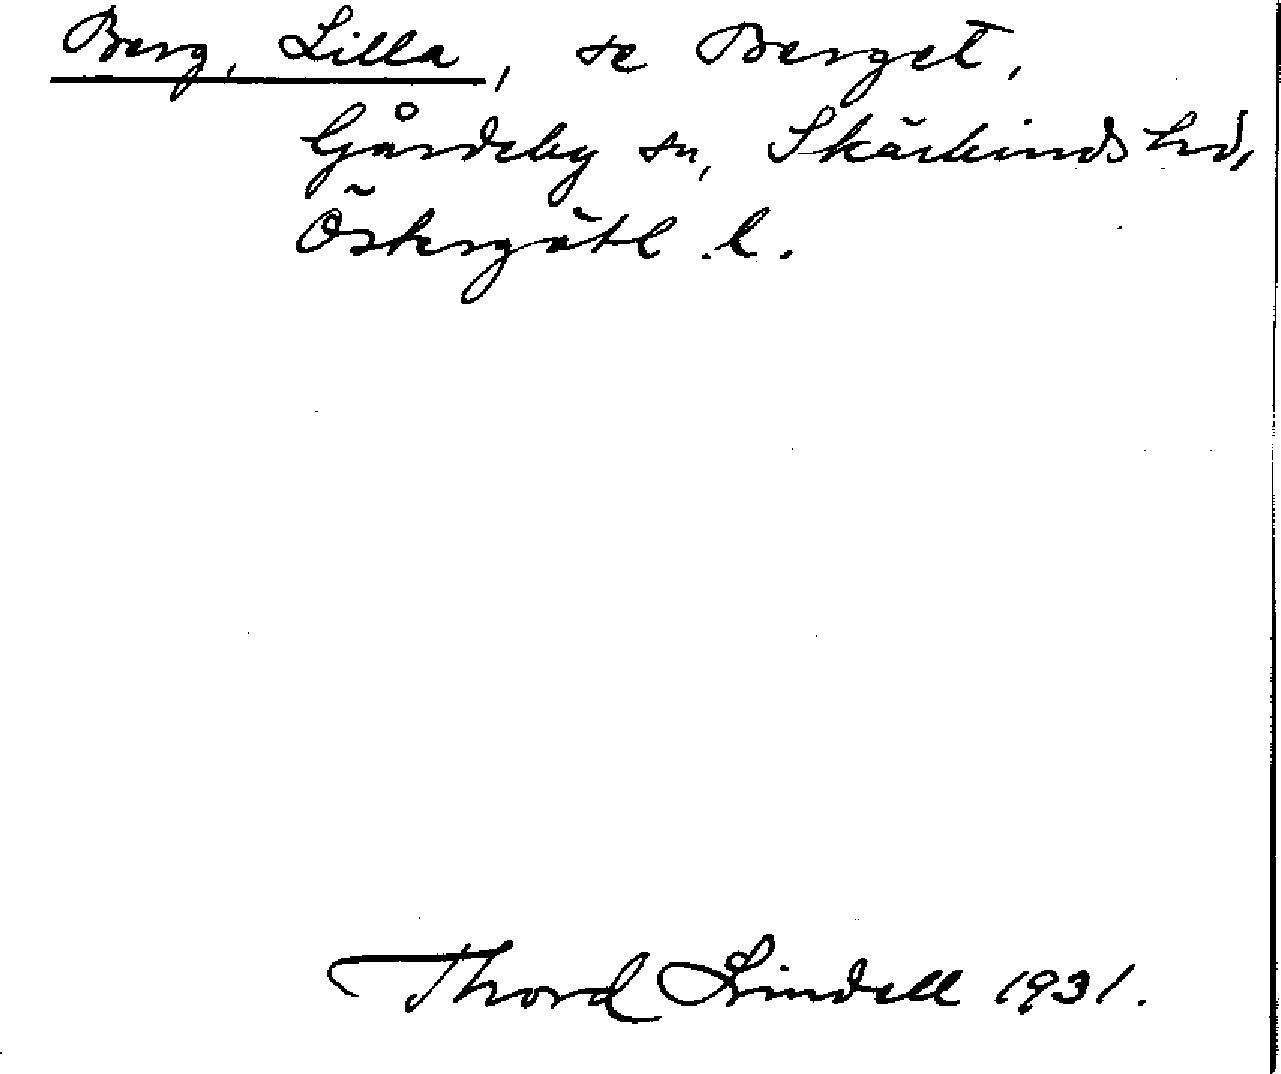 Berg, Lilla, se Berget,
Gårdeby sn, Skärkinds hd,
Östergötl. l.
Thord Lindell 1931.